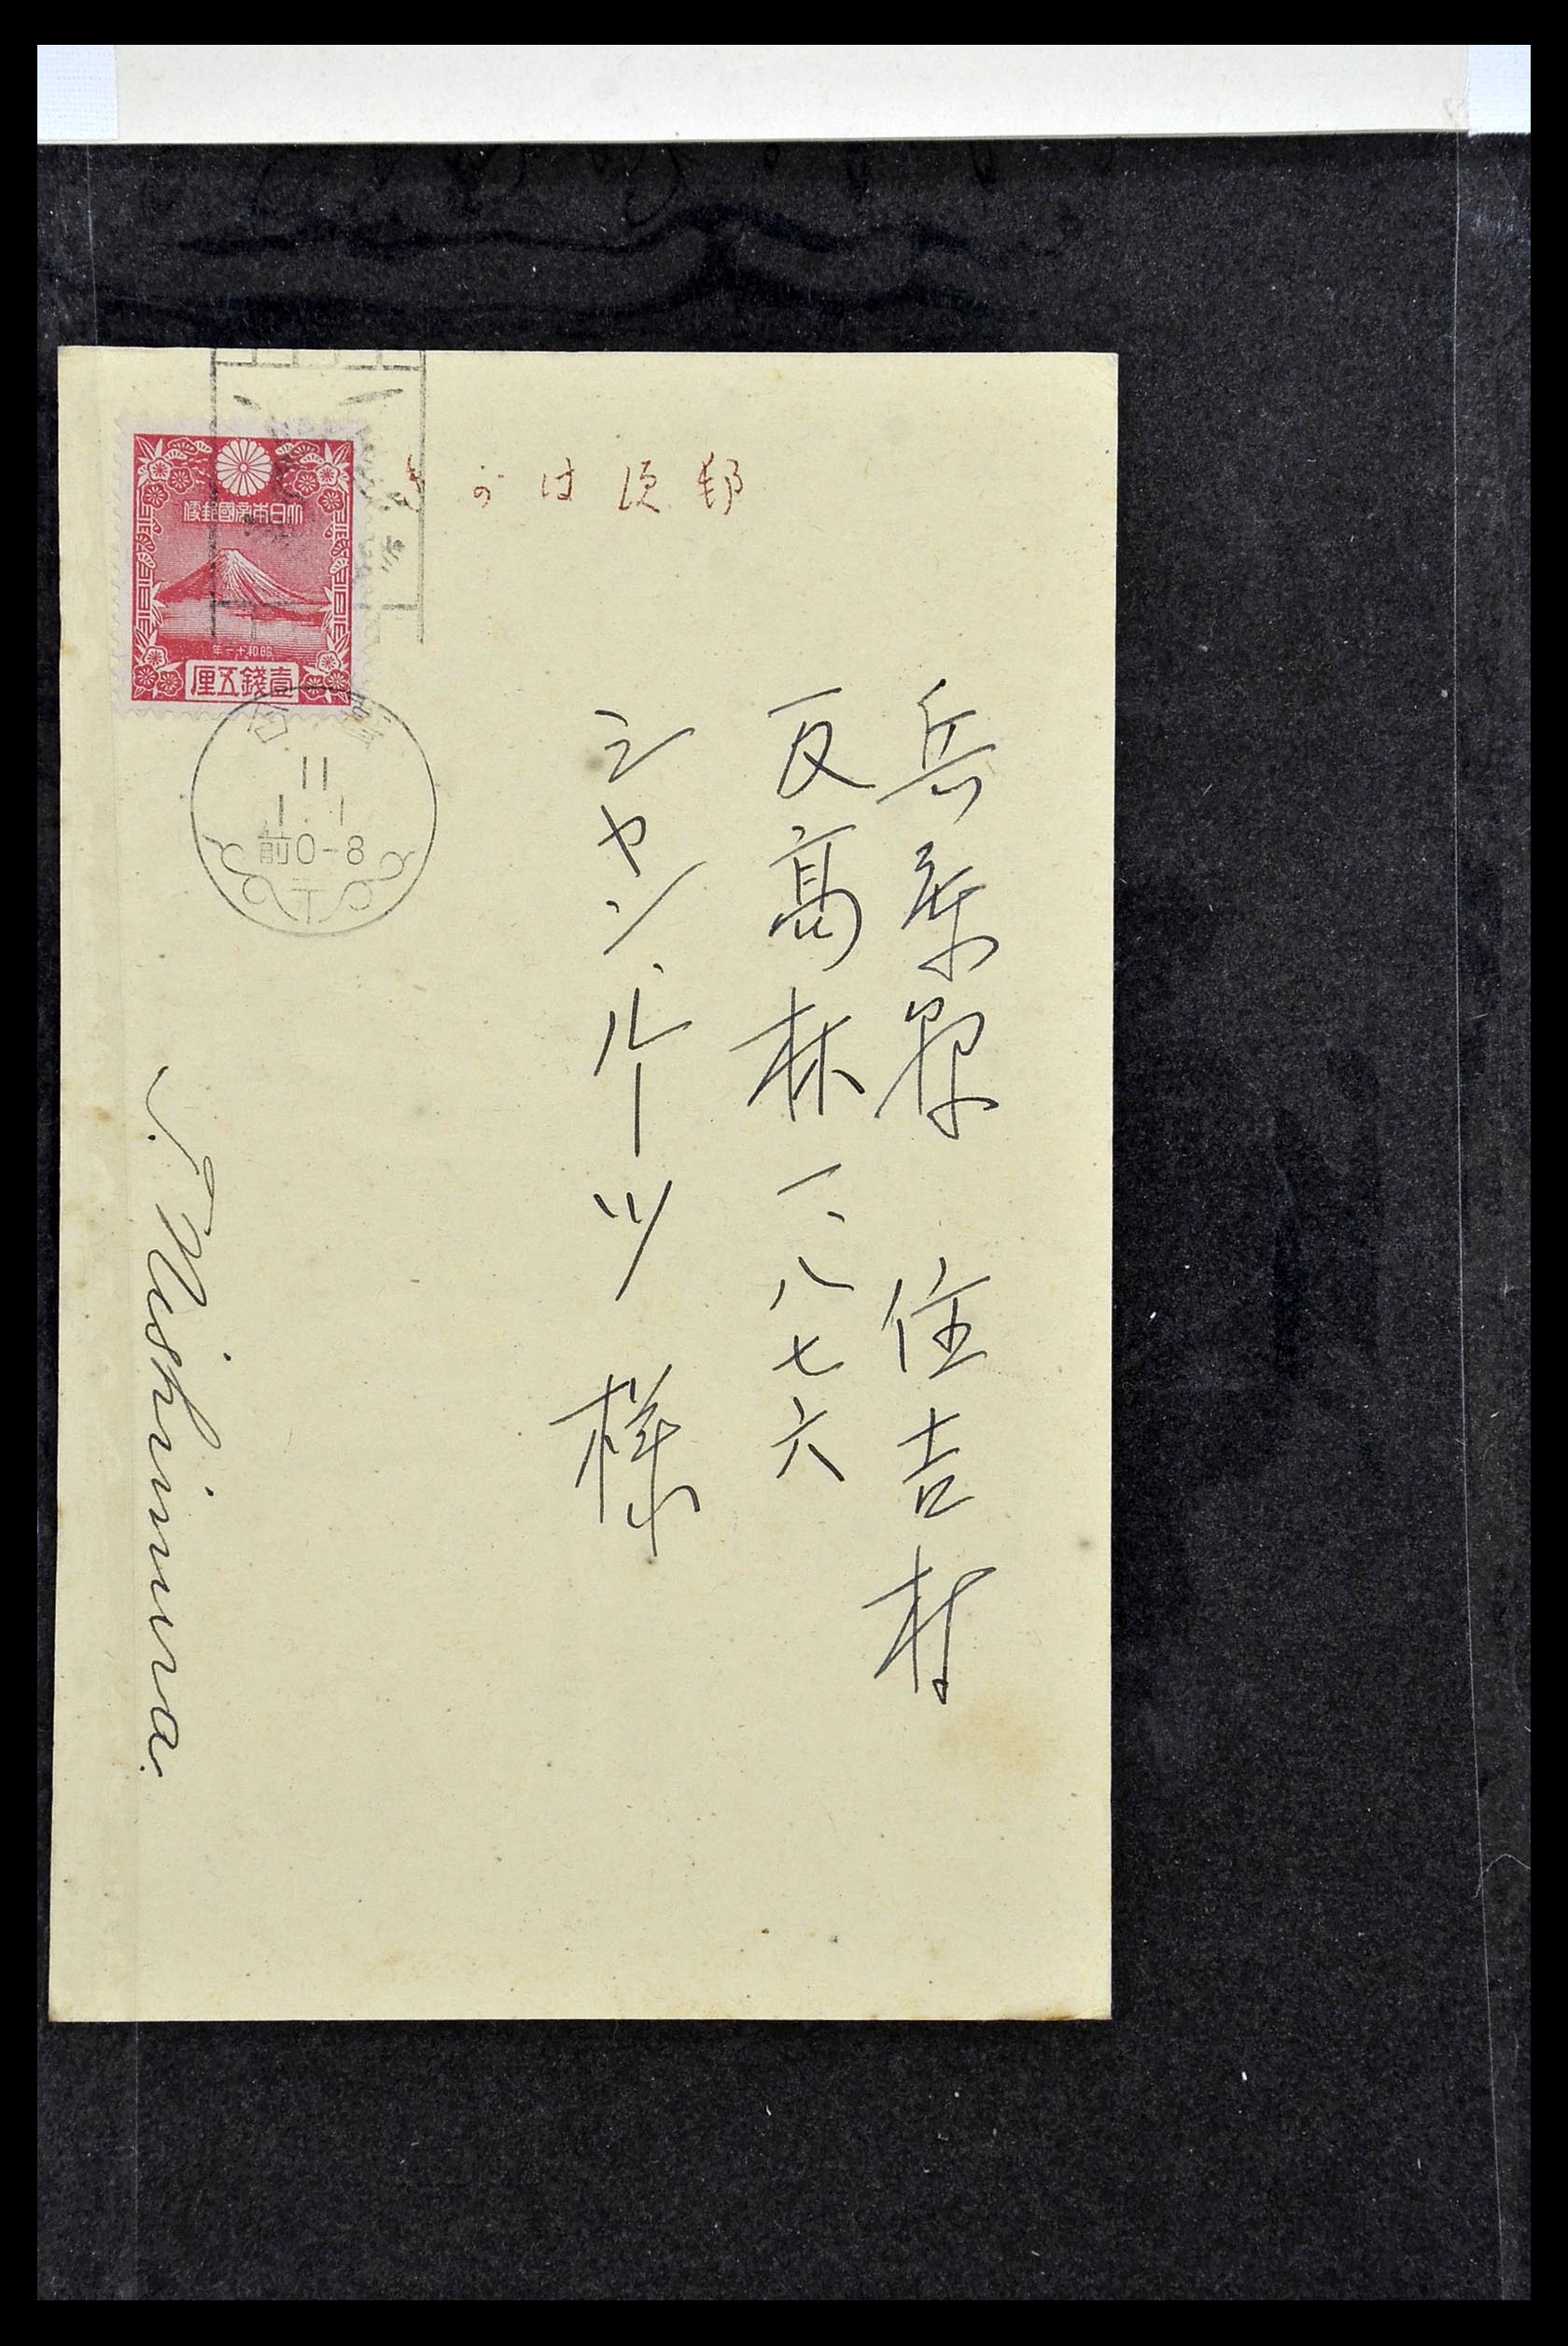 郵便はがき
大日本帝國郵便
昭和十一年
壹錢五厘
11
1.1
前0-8
兵庫県 住吉村
反高林一、八七六
シャン、ルーツ 様
S. Nishimura.